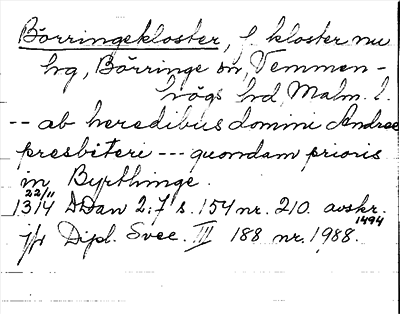 Börringekloster, f. kloster nu
hg, Börringe sn, Vemmen-
högs hd, Malm. l.
-- ab heredibus domini Andree
presbiteri --- quondam prioris
in Byrthinge.
22/11
1314 DDan 2:7 s. 154 nr. 210. avskr.
1494
jfr Dipl. Svec. III 188 nr. 1988.